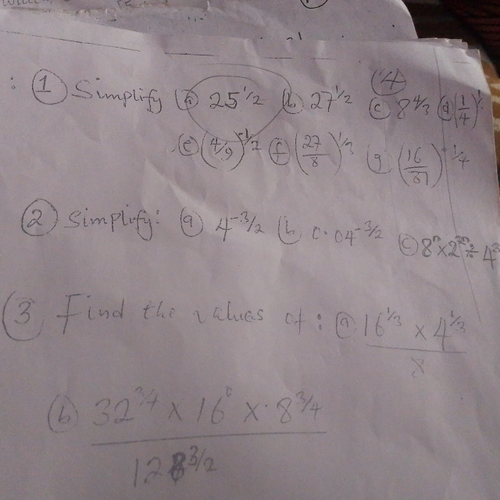 (4
① Simplify ⓐ 25^1/2 ⓑ 27^1/2 ⓒ 8^4/3 ⓓ (1/4)
ⓔ (4/9)^-1/2 ⓕ (27/8)^1/3 ⓖ (16/81)^-1/4
② Simplify: ⓐ 4^-3/2 ⓑ 0.04^-3/2 ⓒ 8^n × 2^2n ÷ 4
(3 Find the values of: ⓐ 16^1/3 × 4^1/3
8
ⓑ 32^3/4 × 16^0 × 8^3/4
128^3/2